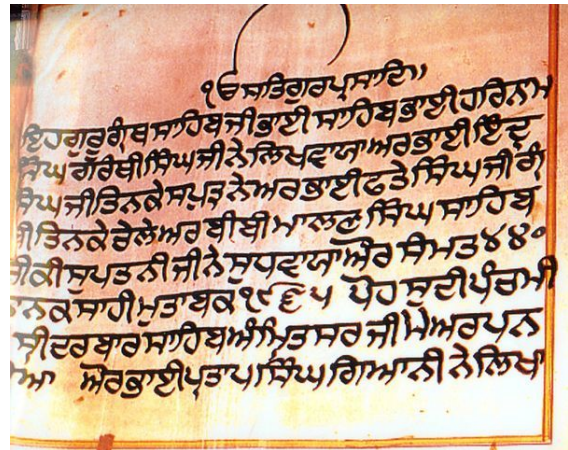 ੴ ਸਤਿਗੁਰਪ੍ਰਸਾਦਿ॥
ਇਹਗੁਰੂਗ੍ਰੰਥਸਾਹਿਬਜੀਭਾਈਸਾਹਿਬਭਾਈਹਰਿਨਾਮ
ਸਿੰਘ ਗ੍ਰੰਥੀਸਿੰਘਜੀਨੇਲਿਖਵਾਯਾਅਰਭਾਈਇੰਦ੍ਰ
ਸਿੰਘਜੀਤਿਨਕੇਸਪੁਤ੍ਰਨੇਅਰਭਾਈਫਤੇਸਿੰਘਜੀ
ਜੀਤਿਨਕੇਚੇਲੇਅਰਬੀਬੀਮਾਲਣਸਿੰਘਸਾਹਿਬ
ਜੀਕੀਸੁਪਤਨੀਜੀਨੇਸੁਧਵਾਯਾਔਰਸੰਮਤ੪੪੦
ਨਾਨਕਸਾਹੀਮੁਤਾਬਕ੧੯੬੫ ਪੋਹਸੁਦੀਪੰਚਮੀ
ਸ੍ਰੀਦਰਬਾਰਸਾਹਿਬਅੰਮ੍ਰਿਤਸਰਜੀਮੇਂਅਰਪਨ
ਔਰਭਾਈਪ੍ਰਤਾਪਸਿੰਘਗਿਆਨੀਨੇਲਿਖਾ